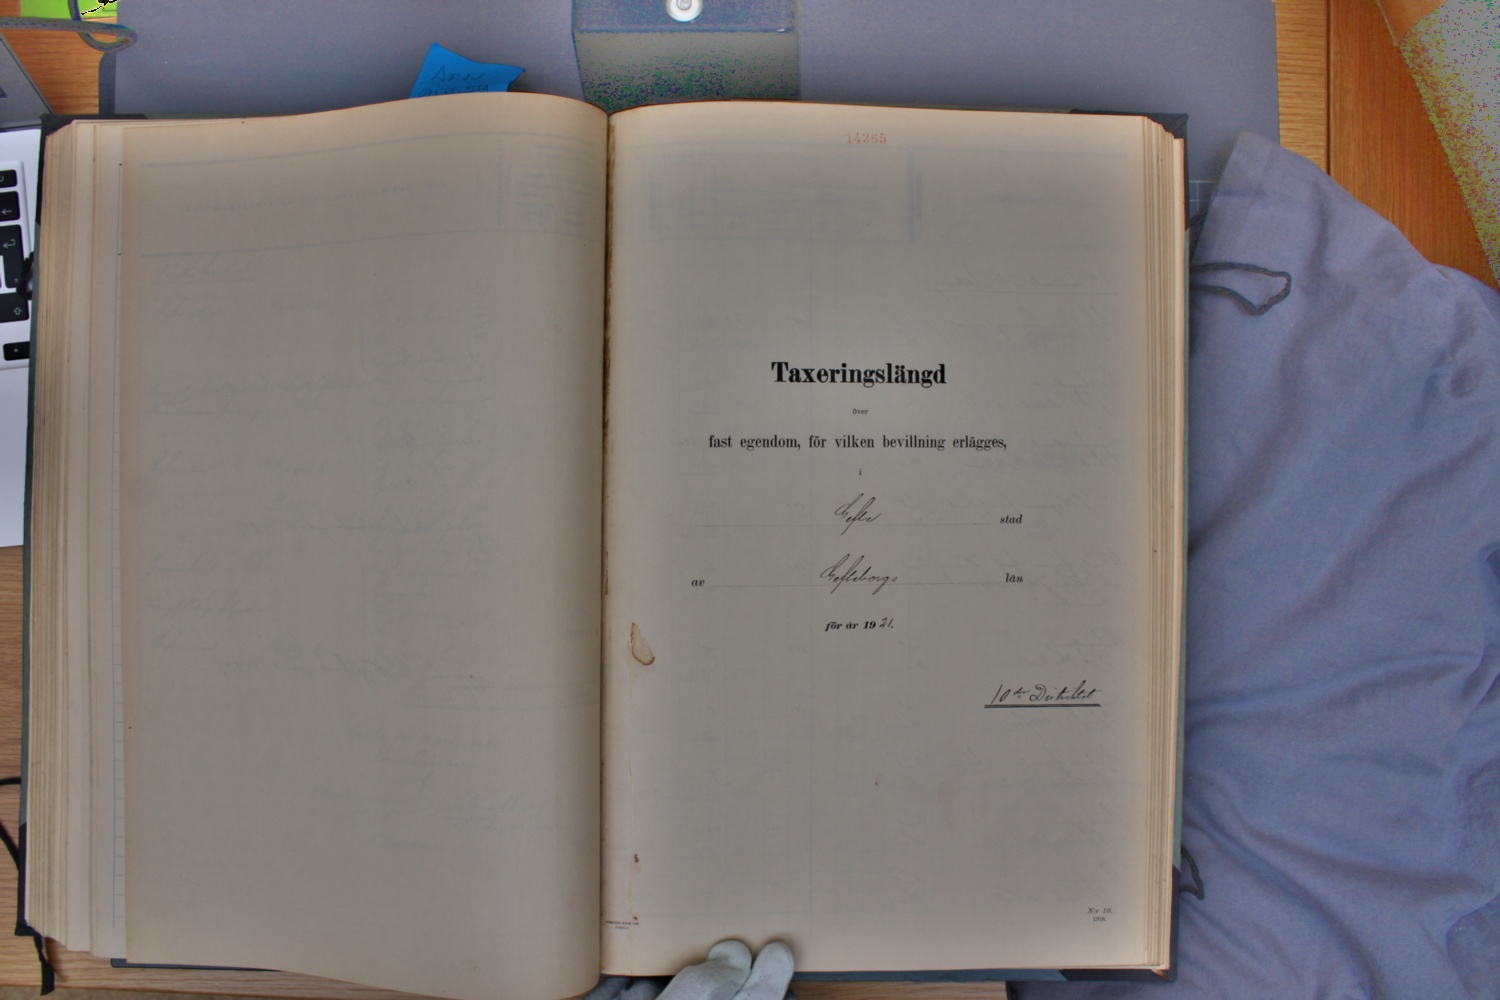 14365
Taxeringslängd
över
fast egendom, för vilken bevillning erlägges,
i
Gefle stad
av Gefleborgs län
för år 1921.
10de Distriktet
N:r 10.